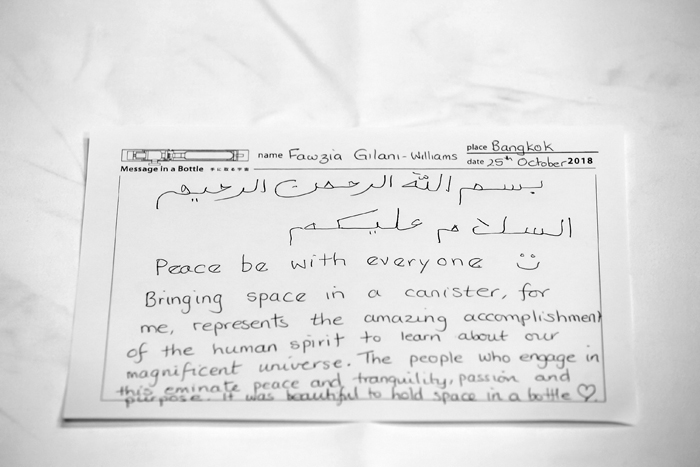 name Fawzia Gilani-Williams
place Bangkok
date 25th October 2018
Message in a Bottle 手に取る宇宙
بسم الله الرحمن الرحيم
السلام عليكم
Peace be with everyone ☺
Bringing space in a canister, for
me, represents the amazing accomplishment
of the human spirit to learn about our
magnificent universe. The people who engage in
this eminate peace and tranquility, passion and
purpose. It was beautiful to hold space in a bottle ♡.